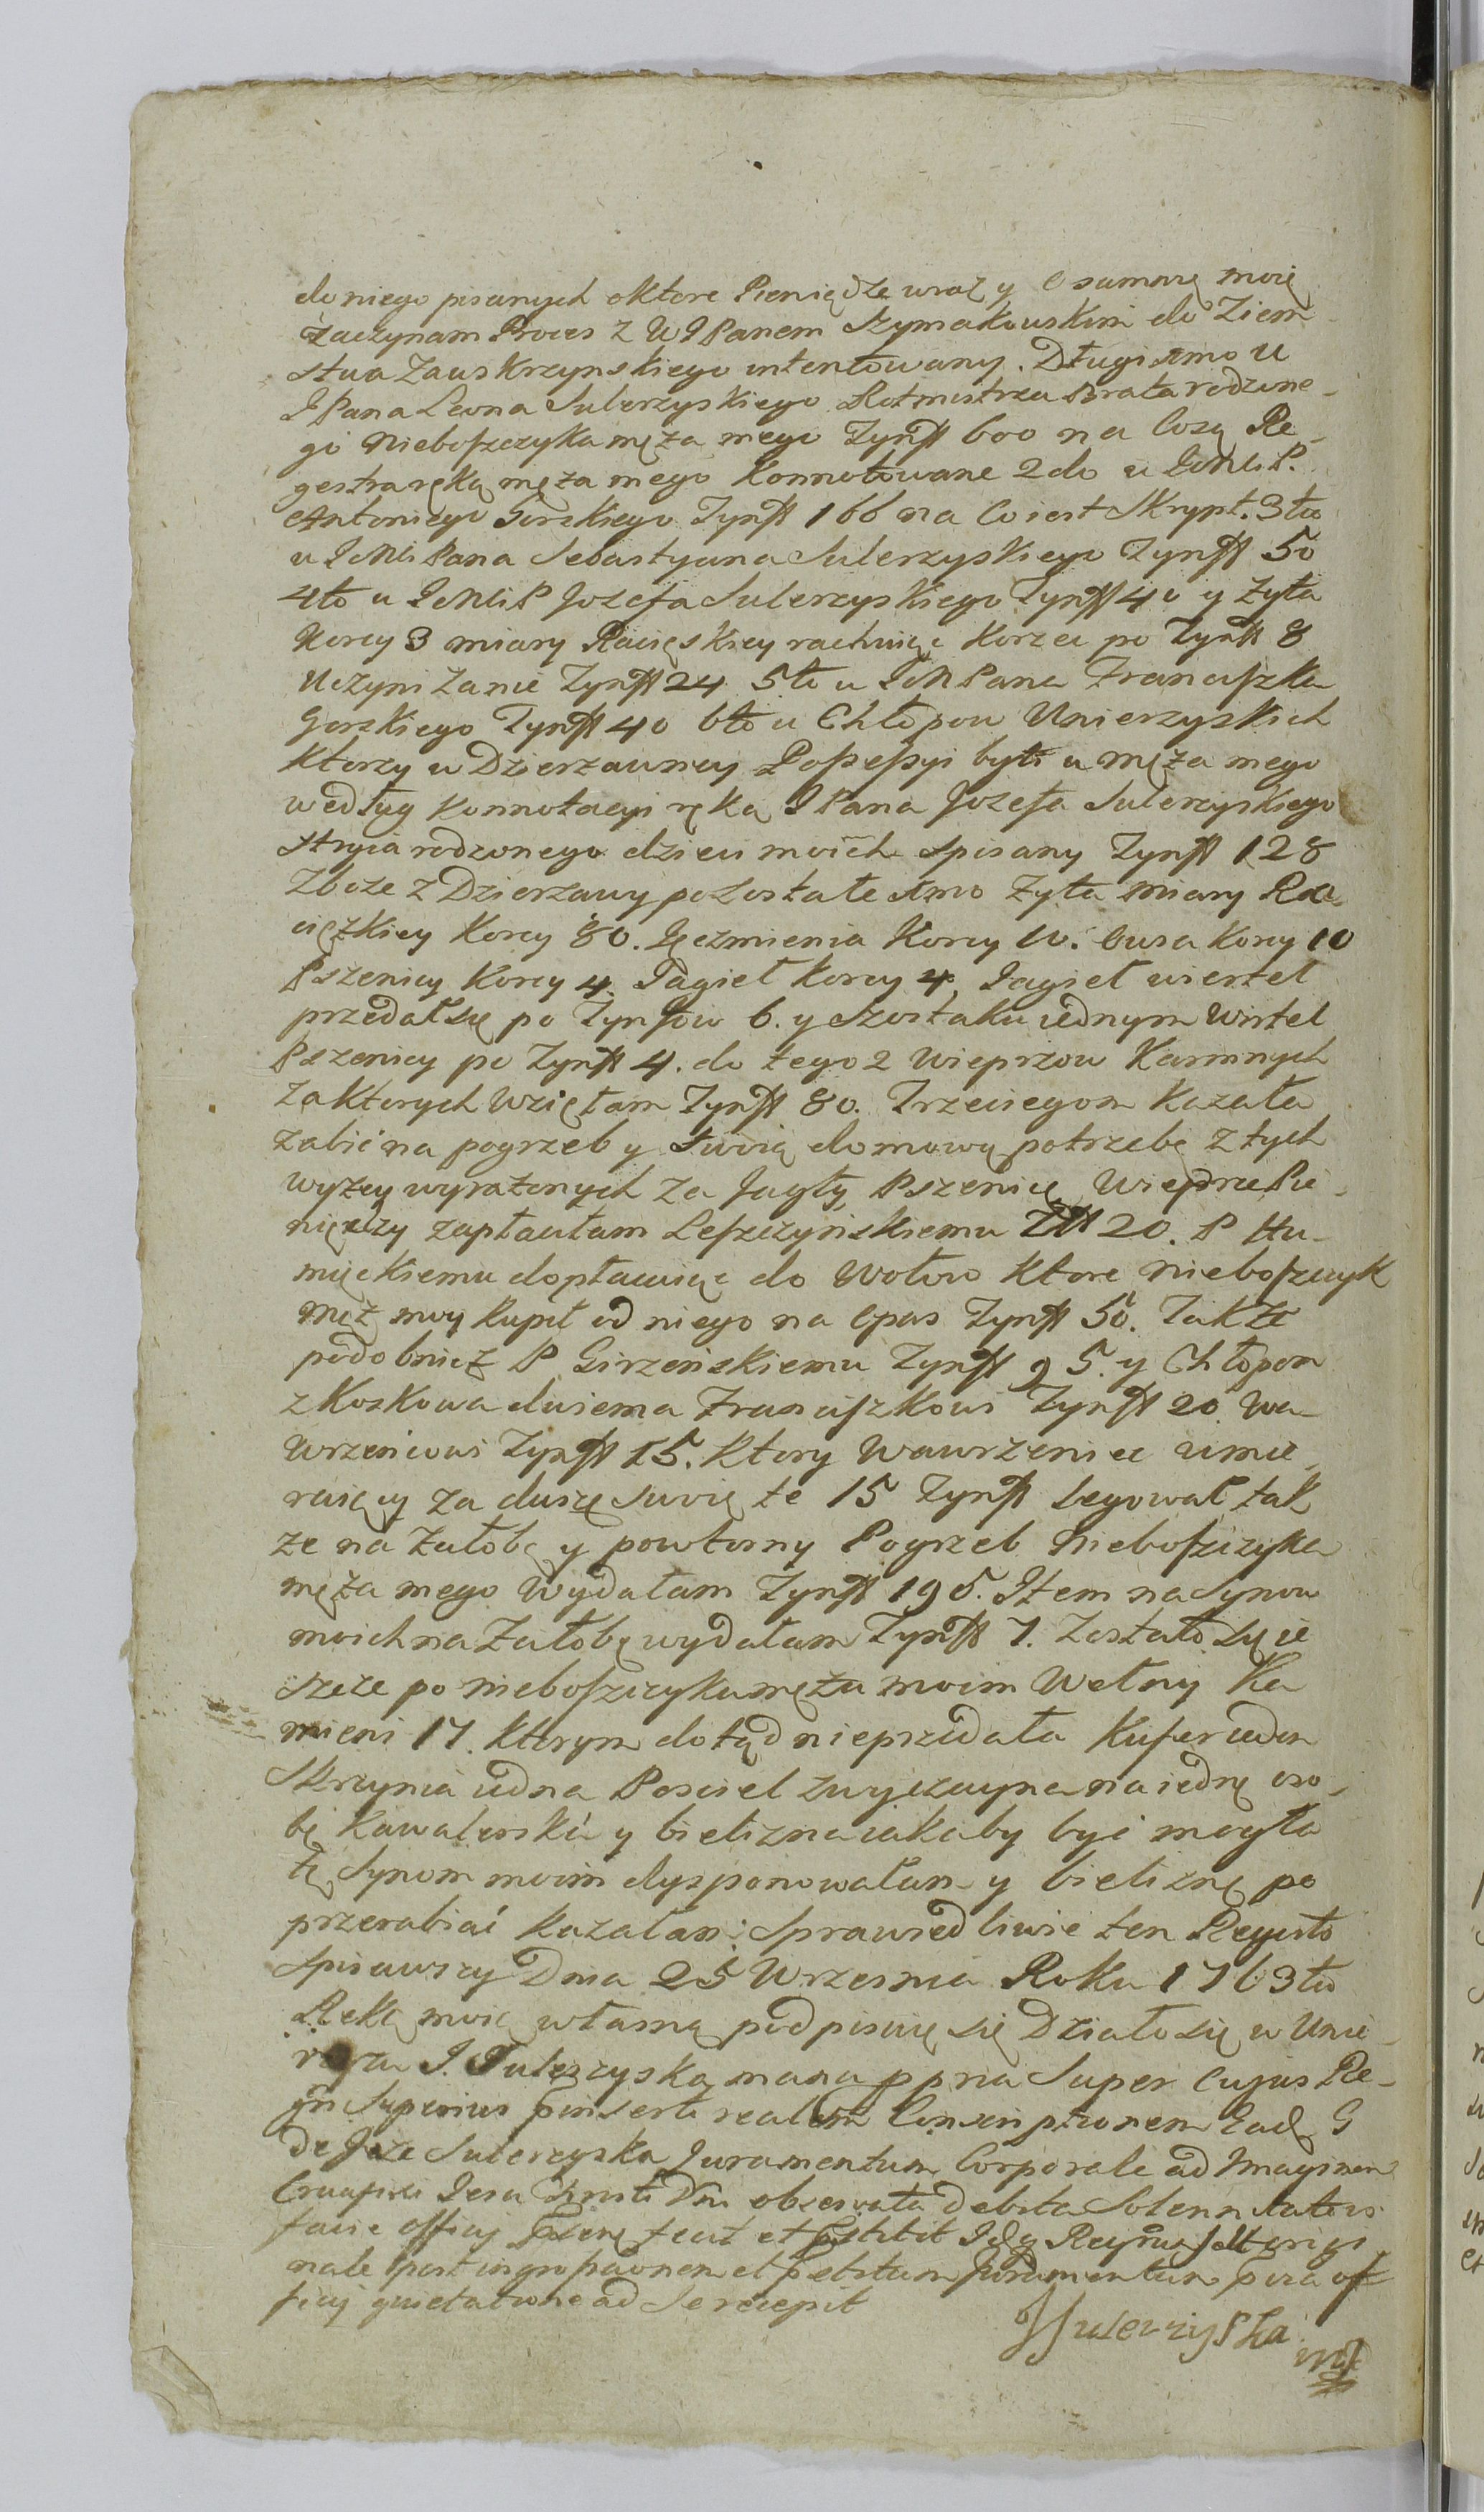 do niego pisanych o ktore Pieniądze wraz y Osamową moię
zaczynam Proces z WJPanem Szymakowskim do Ziem
stwa Zawskrzynskiego intentowany. Długi 1mo u
JPana Leona Sulerzyskiego Rotmistrza Brata rodzone-
go Nieboszczyka męża mego Tynff 600 na co są Re-
gestra ręką męża mego konnotowane 2do u JchMci P.
Antoniego Gorskiego Tynff 166 na co iest Skrypt. 3tio
u JchMci Pana Sebastyana Sulerzyskiego Tynff 50
4to u JchMci P Jozefa Sulerzyskiego Tynff 40 y żyta
Korcy 3 miary Raciąskiey rachuiąc Korzec po Tynff 8
Uczyni Zanie Tynff 24 5to u JchM Pana Franciszka
Gorskiego Tynff 40 6to u Chłopow Unierzyskich
Ktorzy w Dzierżawney Possessyi byli u męża mego
według Konnotacyi ręką JPana Jozefa Sulerzyskiego
stryia rodzonego dzieci moich spisany Tynff 128
Zboże z Dzierżawy pozostałe 1mo żyta miary Ra-
ciążkiey Korcy 80. Ięczmienia Korcy 10. Owsa Korcy 10
Pszenicy Korcy 4. Jagieł korcy 4, Jagieł wiertel
przedał się po Tynfow 6. y szostaku iednym Wiertel
Pszenicy po Tynff 4. do tego 2 Wieprzow Karmnych
Za Ktorych Wzięłam Tynff 80. Trzeciegom Kazała
zabić na pogrzeb y swoią domową potrzebę z tych
wyżey wyrażonych za Jagły, Pszenicę, Wieprze Pie-
niędzy zapłaciłam Leszczyńskiemu Tff 20. P Hu-
mięckiemu dopłacaiąc do Wołow Ktore nieboszczyk
mąż moy kupił od niego na Opas Tynff 50. Także
podobnież P Girzeńskiemu Tynff 95. y Chłopom
z Koskowa dwiema Franciszkowi Tynff 20 Wa-
Wrzeńcowi Tynff 15. Ktory Wawrzeniec umie-
raiący za duszę swoię te 15 Tynff Legował tak
że na żałobę y powtorny Pogrzeb Nieboszczyka
męża mego Wydałam Tynff 195. Item na Synow
moich na Żałobę wydałam Tynff 7. Zostało się ie
szcze po nieboszczyku mężu moim Wełny Ka
mieni 17. Ktorym dotąd nieprzedała Kufer ieden
Skrzynia iedna Posciel zwyczayna na iednę oso-
bę Kawalerską y bielizna iakaby być mogła
tę Synom moim dysponowałam y bieliznę po
przerabiać kazałam: Sprawiedliwie ten Regestr
Spisawszy Dnia 25 Wrzesnia Roku 1763tio
Ręką moią własną podpisuię się Działo się w Unie-
rzyżu J. Sulerzyska manu ppria Super cujus Re-
gri Superius inserti realem Conscriptionem Ead G
de Jeże Sulerzyska Juramentum Corporale ad Imaginem
Crucifixi Jesu Christi Dni observata debita Solennitate in
facie officij fecit et Idq Regrum Origi-
nale post ingrossationem et Juramentum
ficij quietatione ad Se recepit
JSulerzyska
mp